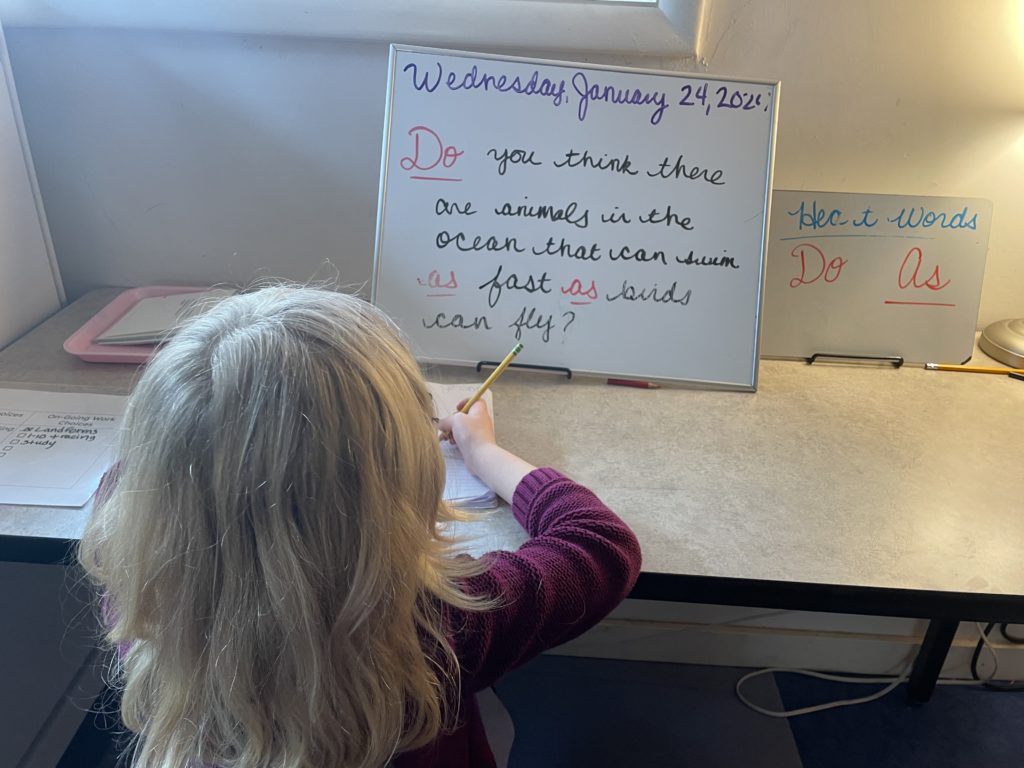 Wednesday, January 24,
Do you think there
are animals in the
ocean that can swim
as fast as birds
can fly?
Words
Do As
On-Going Work
Choices
Landforms
Study